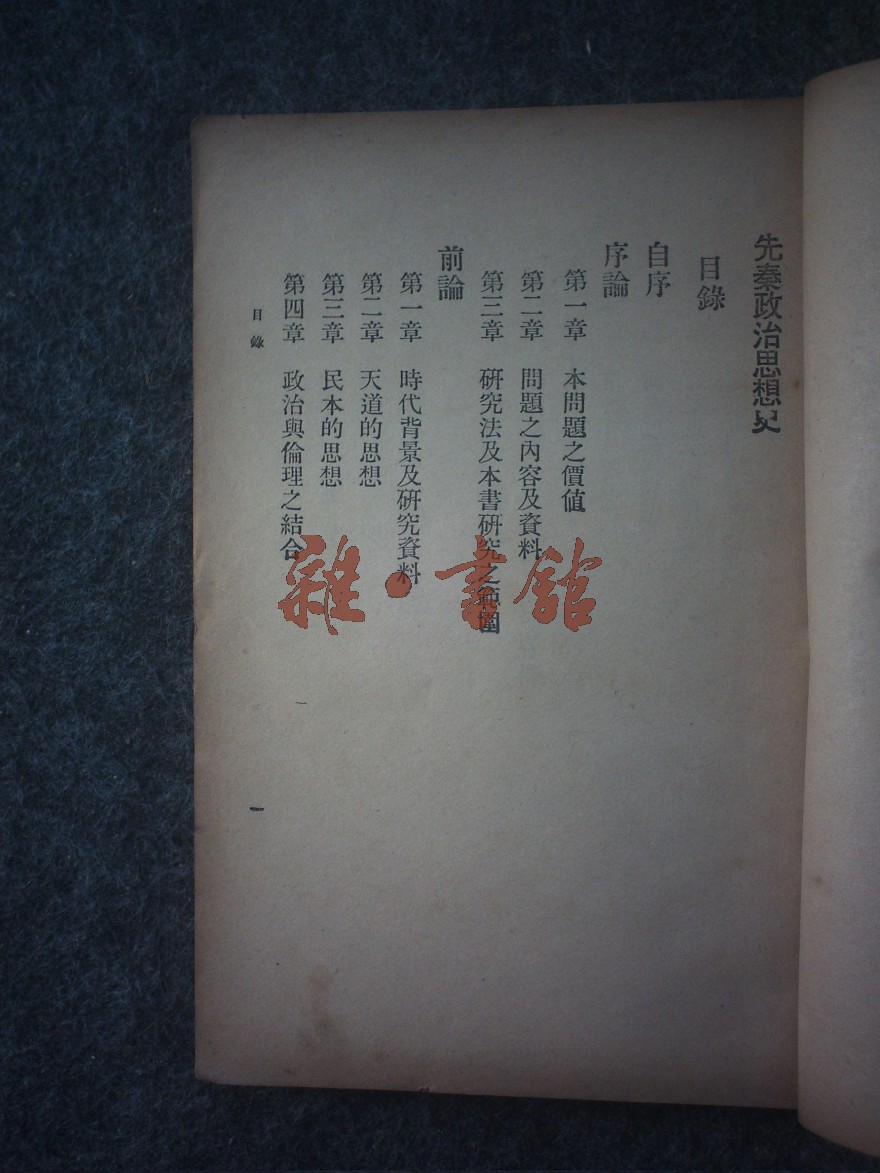 先秦政治思想史
目錄
自序
序論
第一章 本問題之價值
第二章 問題之內容及資料
第三章 研究法及本書研究之範圍
前論
第一章 時代背景及研究資料
第二章 天道的思想
第三章 民本的思想
第四章 政治與倫理之結合
目錄
一
雜·書館